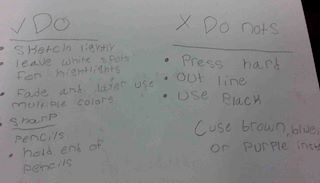 ✓ Do
• Sketch lightly
• leave white spots
for highlights
• Fade and later use
multiple colors
• Sharp
pencils
• hold end of
pencils
X Do nots
• Press hard
• Out line
• Use Black
(use brown, blue,
or Purple inste